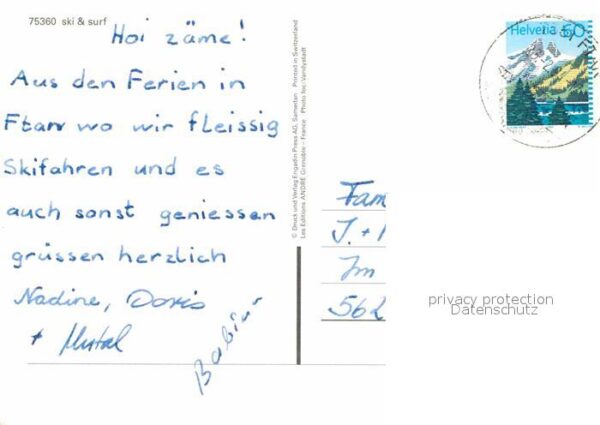 75360 ski & surf
Hoi zäme!
Aus den Ferien in
Ftan wo wir fleissig
Skifahren und es
auch sonst geniessen
grüssen herzlich
Nadine, Doris
+
© Druck und Verlag Engadin Press AG, Samedan Printed in Switzerland
Les Editions ANDRÉ Grenoble – France Photo Nec-Vandystadt
Helvetia 50
Fam
J. +
Im
562
privacy protection
Datenschutz